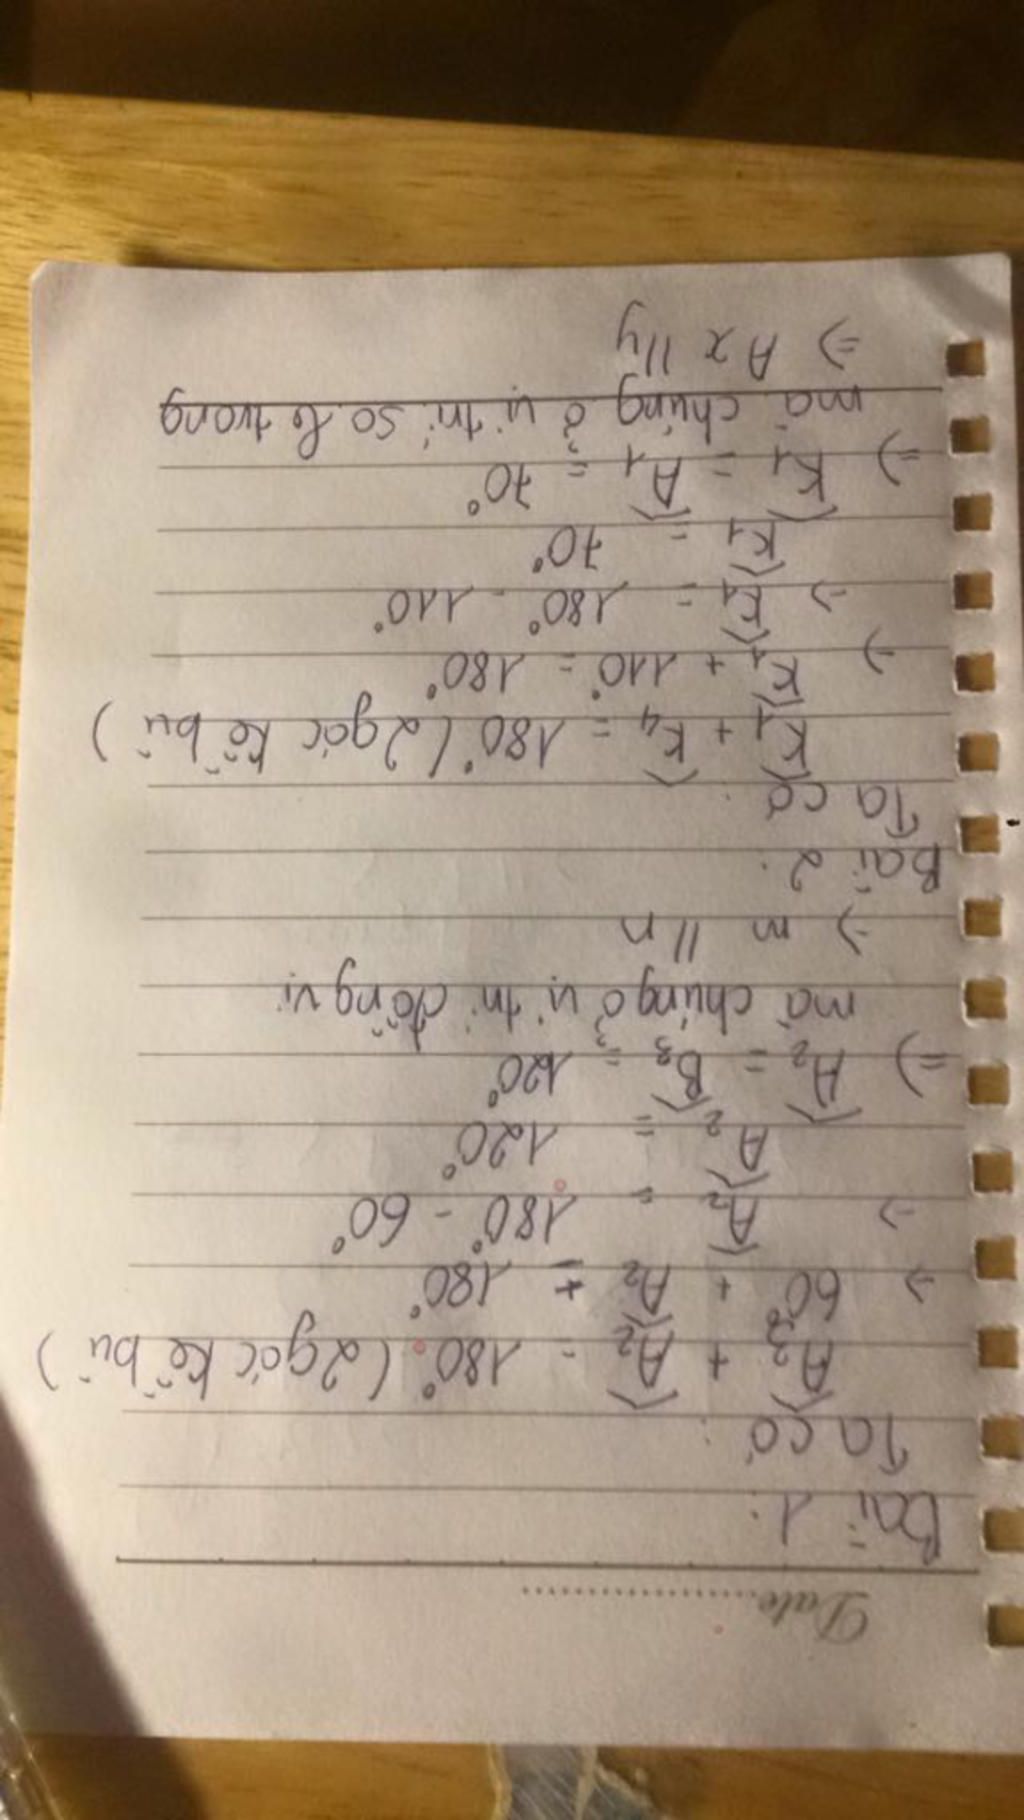 Date
Bài 1:
Ta có:
Â₃ + Â₂ = 180° (2 góc kề bù)
→ 60° + Â₂ = 180°
→ Â₂ = 180° - 60°
Â₂ = 120°
=> Â₂ = B̂₃ = 120°
mà chúng ở vị trí đồng vị
=> m // n
Bài 2:
Ta có:
K̂₁ + K̂₄ = 180° (2 góc kề bù)
→ K̂₁ + 110° = 180°
→ K̂₁ = 180° - 110°
K̂₁ = 70°
=> K̂₁ = Â₁ = 70°
mà chúng ở vị trí so le trong
=> Ax // y